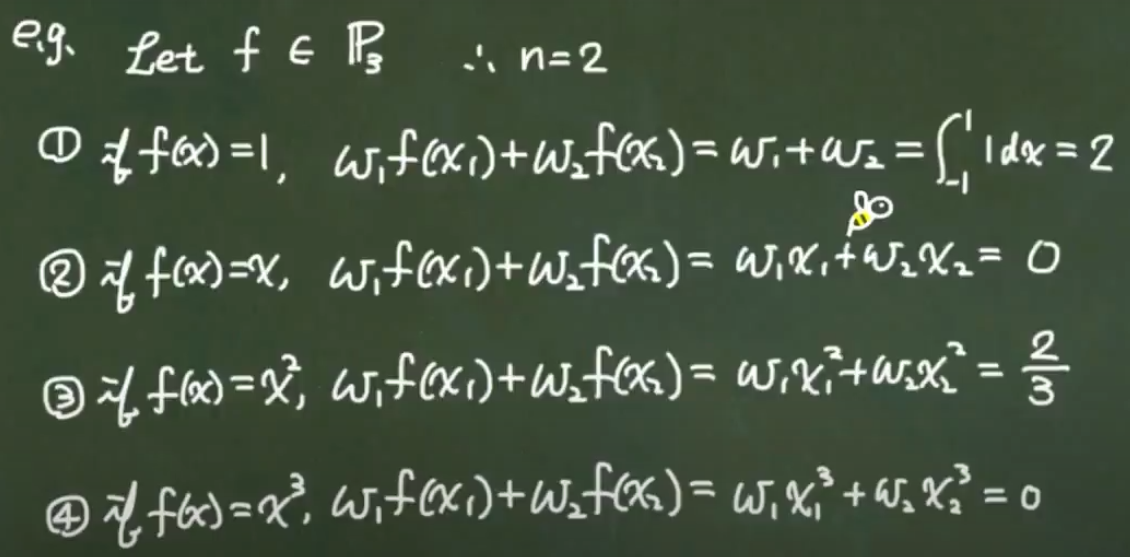 e.g. Let f ∈ ℙ₃ ∴ n=2
① if f(x)=1, w₁f(x₁)+w₂f(x₂)=w₁+w₂=∫₋₁¹ 1dx=2
② if f(x)=x, w₁f(x₁)+w₂f(x₂)= w₁x₁+w₂x₂= 0
③ if f(x)=x², w₁f(x₁)+w₂f(x₂)= w₁x₁²+w₂x₂² = 2/3
④ if f(x)=x³, w₁f(x₁)+w₂f(x₂)= w₁x₁³+w₂x₂³=0